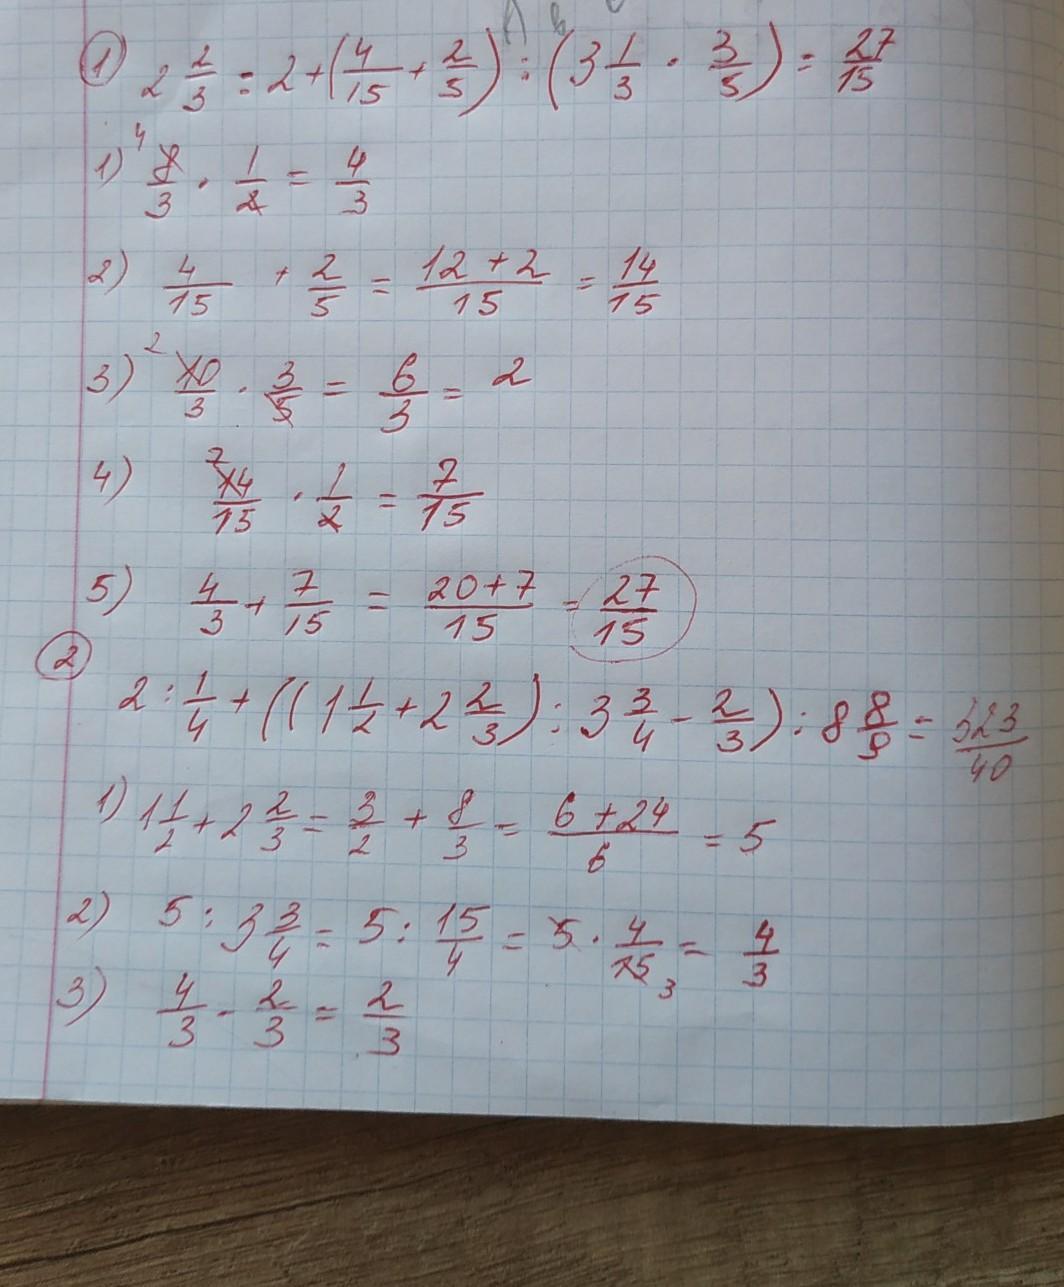 1) 2 2/3 : 2 + (4/15 + 2/5) : (3 1/3 · 3/5) = 27/15
1) 4 8/3 · 1/2 = 4/3
2) 4/15 + 2/5 = 12+2/15 = 14/15
3) 2 10/3 · 3/5 = 6/3 = 2
4) 7 14/15 · 1/2 = 7/15
5) 4/3 + 7/15 = 20+7/15 = 27/15
2
2 : 1/4 + ((1 1/2 + 2 2/3) : 3 3/4 - 2/3) : 8 8/9 = 323/40
1) 1 1/2 + 2 2/3 = 3/2 + 8/3 = 6+24/6 = 5
2) 5 : 3 3/4 = 5 : 15/4 = 5 · 4/15 3 = 4/3
3) 4/3 - 2/3 = 2/3